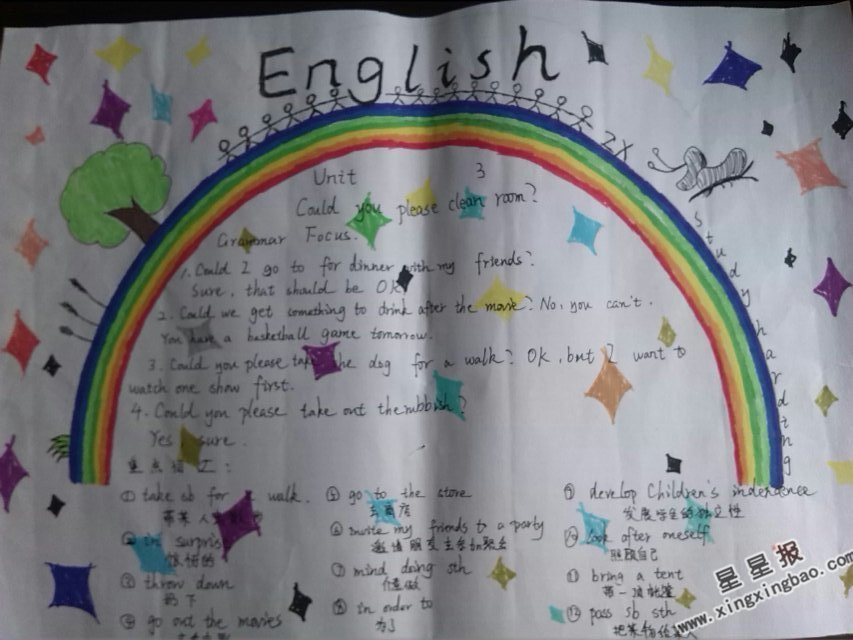 English
Unit 3
Could you please clean room?
Grammar Focus.
1. Could I go to for dinner with my friends?
Sure, that should be OK
2. Could we get something to drink after the movie? No, you can't.
You have a basketball game tomorrow.
3. Could you please take the dog for a walk? OK, but I want to
watch one show first.
4. Could you please take out the rubbish?
Yes sure.
重点词汇:
① take sb for a walk.
带某人
② in surpris
③ throw down
扔下
④ go out the movies
⑤ go to the store
去商店
⑥ invite my friends to a party
邀请朋友去参加聚会
⑦ mind doing sth
介意做
⑧ in order to
为了
⑨ develop Children's indendence
发展学生的独立性
⑩ look after oneself
照顾自己
⑪ bring a tent
带一顶帐篷
⑫ pass sb sth
把某物给某
Study hard
星星报
www.xingxingbao.com